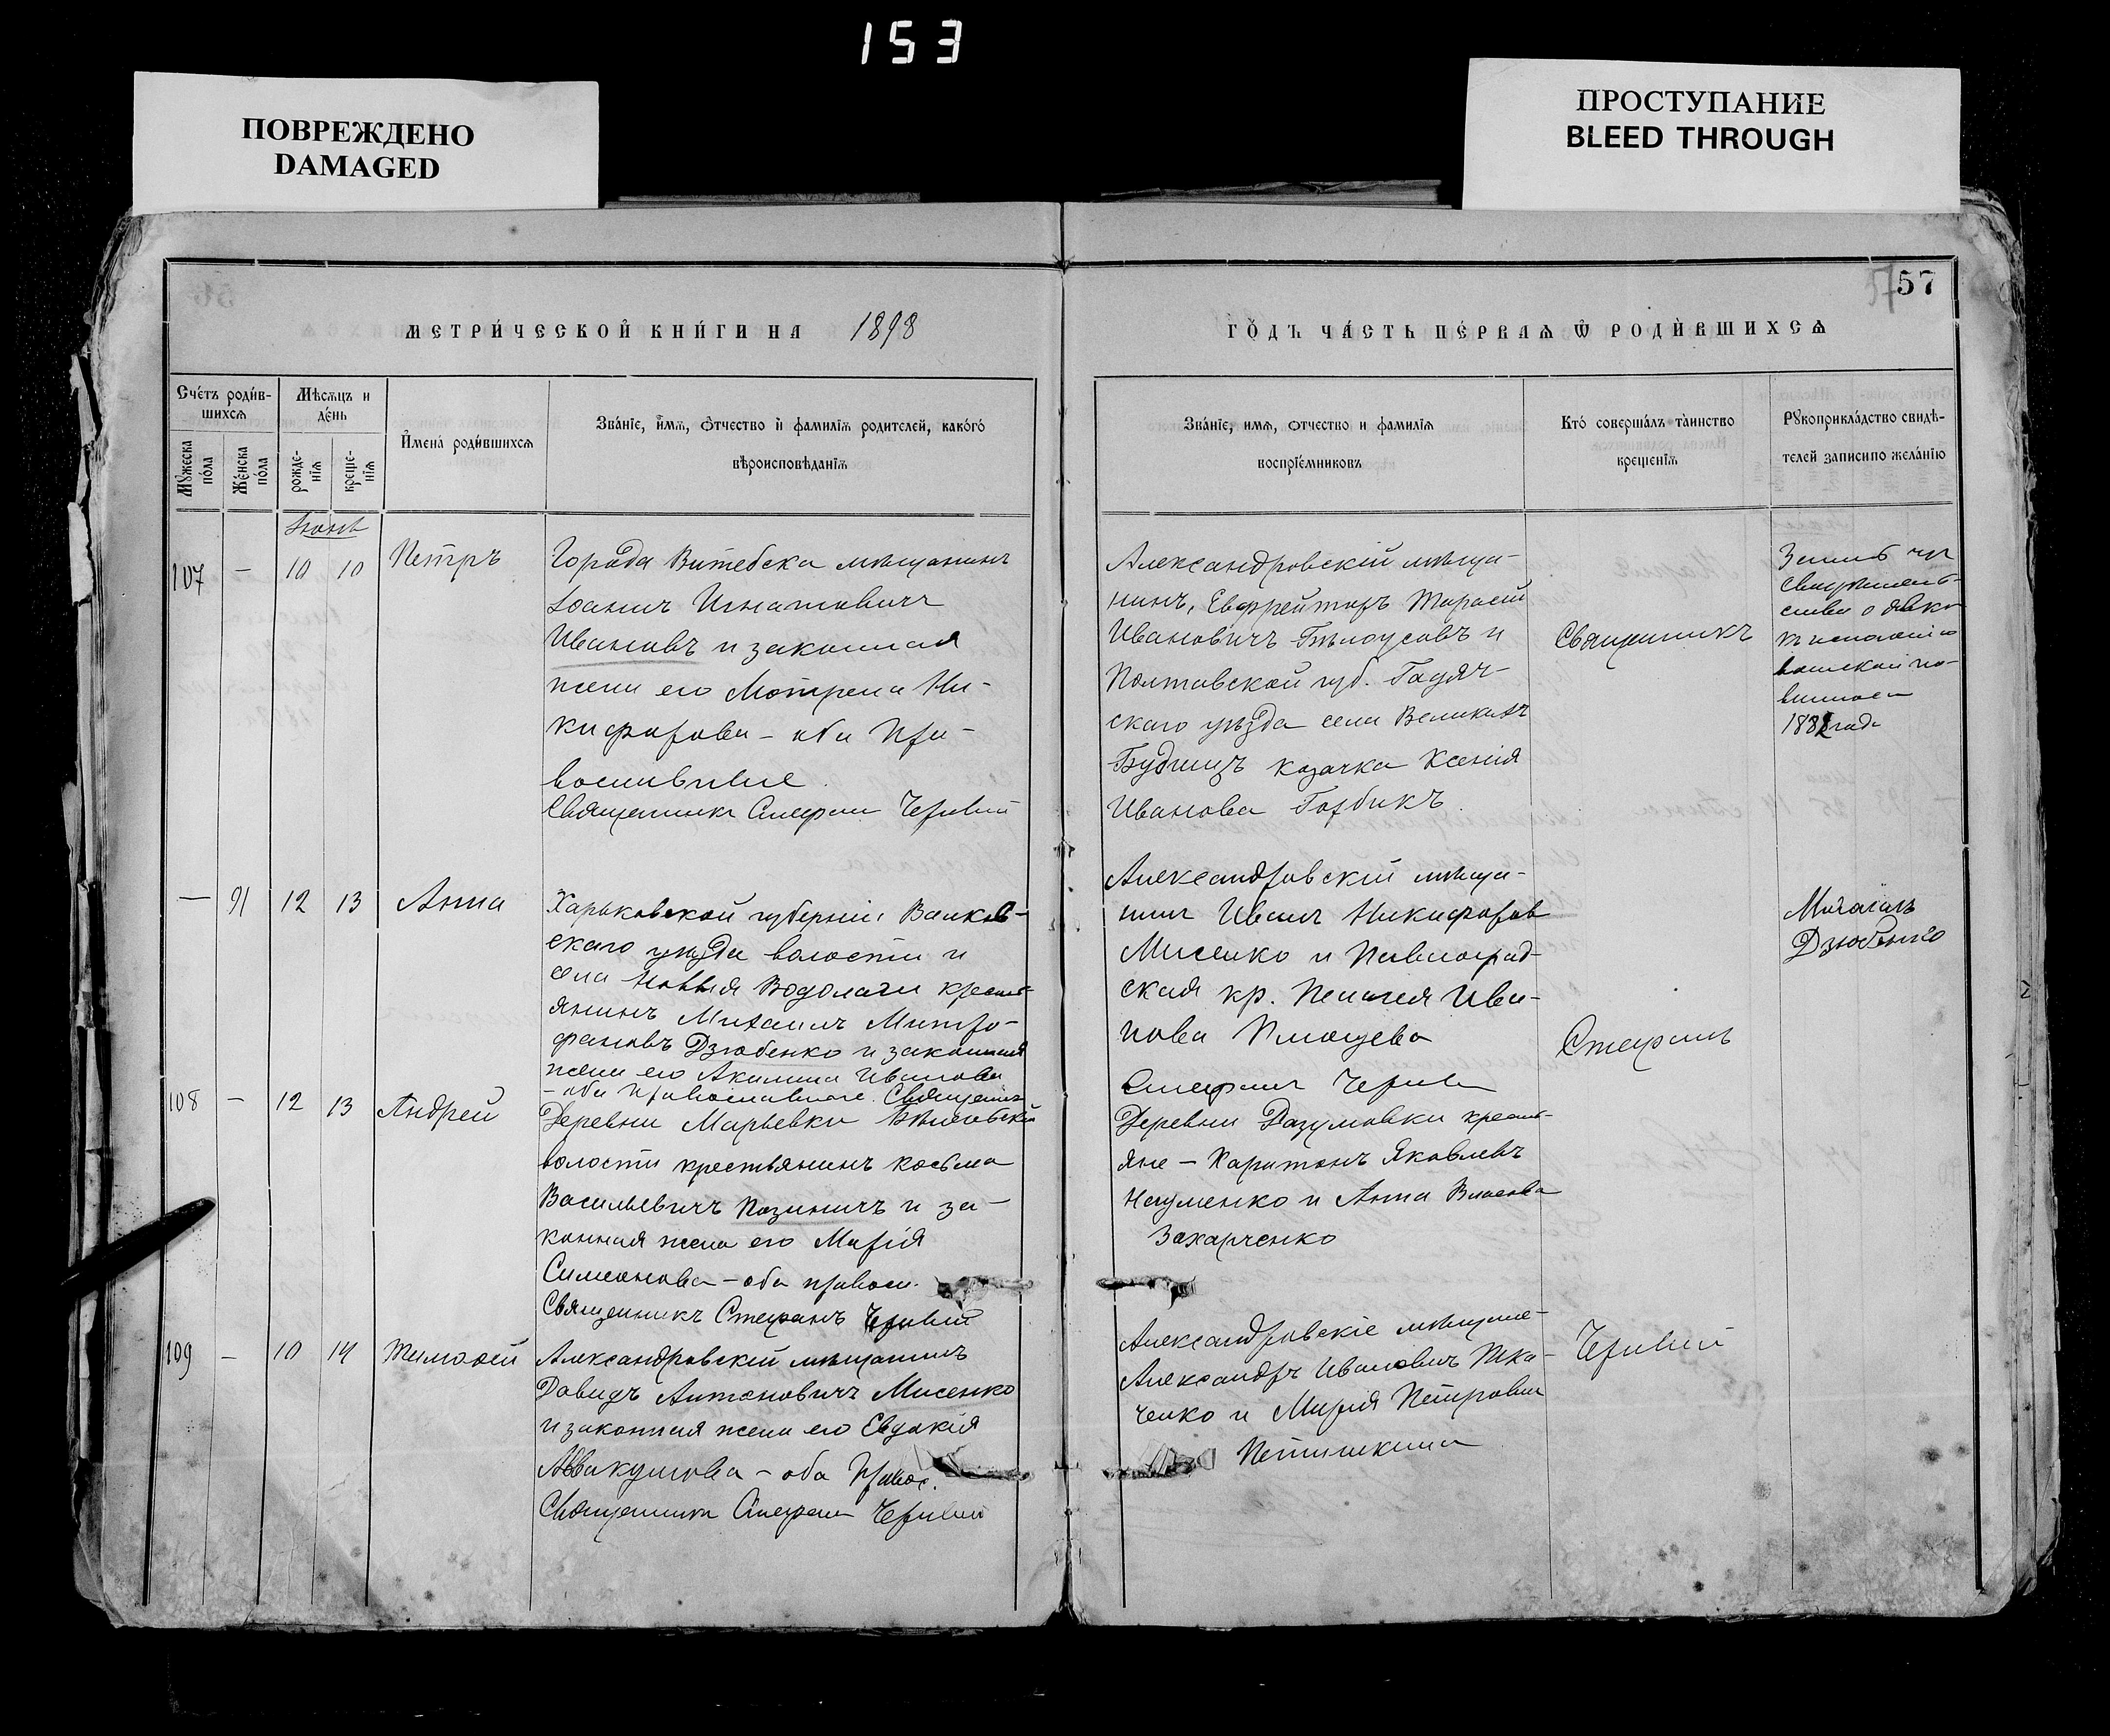 153
ПОВРЕЖДЕНО
DAMAGED
ПРОСТУПАНИЕ
BLEED THROUGH
57
МЕТРИ́ЧЕСКОЙ КНИ́ГИ НА 1898
ГО́ДЪ ЧА́СТЬ ПЕ́РВАѦ Ѿ РОДИ́ВШИХСѦ
Сче́тъ роди́в-
шихсѧ
Мѣсѧцъ и
де́нь
Мꙋжеска
по́ла
Же́нска
по́ла
рожде-
нїѧ
креще-
нїѧ
И҆мена̀ роди́вшихсѧ
Зва́нїе, и҆́мѧ, ѻ҆́тчество и҆ фамилїѧ роди́телей, како́гѡ
вѣроисповѣ́данїѧ
Зва́нїе, имѧ, ѻтчество и фамилїѧ
воспрїе́мниковъ
Кто́ соверша́лъ та́инство
креще́нїѧ
Рꙋкоприкла́дство свидѣ́-
телей записи по жела́нїю
Іюнь
107 — 10 10 Петръ
Города Витебска мѣщанинъ
Іоаннъ Игнатовичъ
Ивановъ и законная
жена его Мотрена Ни-
кифорова – оба пра-
вославные.
Священникъ Стефанъ Черивый
Александровскій мѣща-
нинъ, Ефрейторъ Тарасій
Ивановичъ Бѣлоусовъ и
Полтавской губ. Гадяч-
скаго уѣзда села Великихъ
Будищъ козачка Ксенія
Иванова Горбикъ.
Священникъ
о явкѣ
воинской по-
— 91 12 13 Анна
Харьковской губерніи Валков-
скаго уѣзда волости и
села Новыя Водолаги кресть-
янинъ Михаилъ Митро-
фановъ Дзюбенко и законная
жена его Акилина Иванова
– оба православные. Священникъ
Александровскій мѣща-
нинъ Иванъ Никифоровъ
Мисенко и Павлоград-
ская кр. Пелагея Ива-
нова
Стефанъ
Стефанъ
Михаилъ
Дзюбенко
108 — 12 13 Андрей
Деревни Марьевки
волости крестьянинъ Косьма
Васильевичъ и за-
конная жена его Марія
Симеонова – оба правосл.
Священникъ Стефанъ Черивый
Деревни Разумовки кресть-
яне – Харитонъ Яковлевъ
Науменко и Анна Власова
Захарченко
109 — 10 14 Тимофей
Александровскій мѣщанинъ
Давидъ Антоновичъ Мисенко
и законная жена его Евдокія
Аввакумова – оба правос.
Священникъ Стефанъ Черивый
Александровскіе мѣщане –
Александръ Ивановичъ Тка-
ченко и Марія Петровна
Черивый